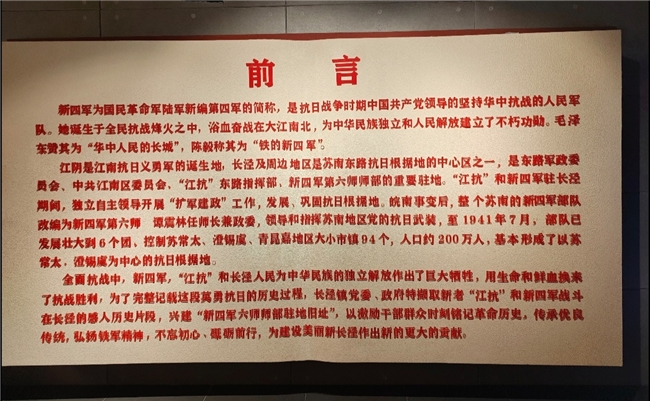 前言
新四军为国民革命军陆军新编第四军的简称，是抗日战争时期中国共产党领导的坚持华中抗战的人民军
队。她诞生于全民抗战烽火之中，浴血奋战在大江南北，为中华民族独立和人民解放建立了不朽功勋。毛泽
东赞其为“华中人民的长城”，陈毅称其为“铁的新四军”。
江阴是江南抗日义勇军的诞生地，长泾及周边地区是苏南东路抗日根据地的中心区之一，是东路军政委
员会、中共江南区委员会、“江抗”东路指挥部、新四军第六师师部的重要驻地。“江抗”和新四军驻长泾
期间，独立自主领导开展“扩军建政”工作，发展、巩固抗日根据地。皖南事变后，整个苏南的新四军部队
改编为新四军第六师 谭震林任师长兼政委，领导和指挥苏南地区党的抗日武装，至1941年7月，部队已
发展壮大到6个团、控制苏常太、澄锡虞、青昆嘉地区大小市镇94个，人口约200万人，基本形成了以苏
常太、澄锡虞为中心的抗日根据地。
全面抗战中，新四军，“江抗”和长泾人民为中华民族的独立解放作出了巨大牺牲，用生命和鲜血换来
了抗战胜利，为了完整记载这段英勇抗日的历史过程，长泾镇党委、政府特撷取新老“江抗”和新四军战斗
在长泾的感人历史片段，兴建“新四军六师师部驻地旧址”，以激励干部群众时刻铭记革命历史，传承优良
传统，弘扬铁军精神，不忘初心、砥砺前行，为建设美丽新长泾作出新的更大的贡献。